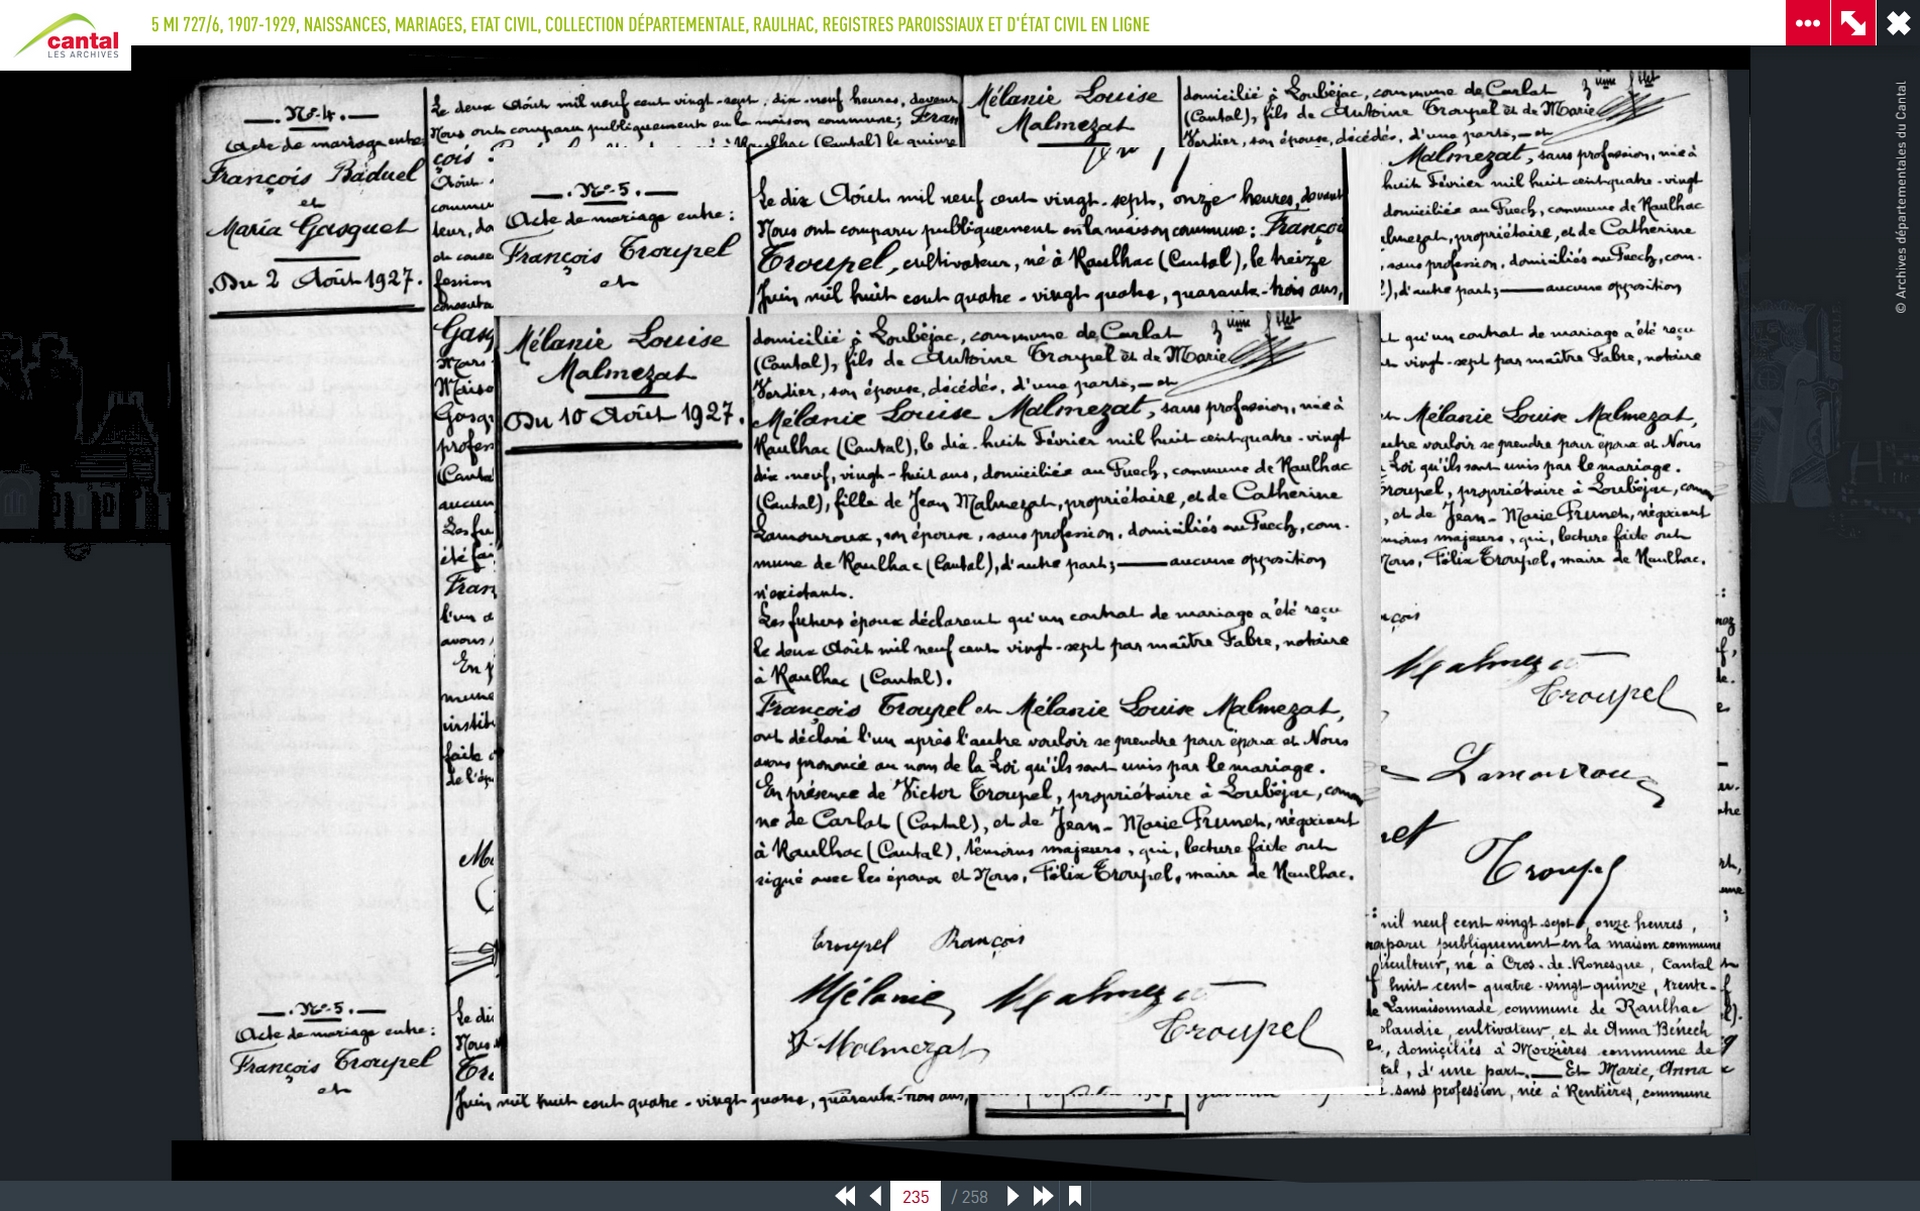 5 MI 727/6, 1907-1929, NAISSANCES, MARIAGES, ETAT CIVIL, COLLECTION DÉPARTEMENTALE, RAULHAC, REGISTRES PAROISSIAUX ET D'ÉTAT CIVIL EN LIGNE
cantal
LES ARCHIVES
© Archives départementales du Cantal
N° 4.
Acte de mariage entre
François Baduel
et
Maria Gasquet
Du 2 Août 1927.
Le deux Août mil neuf cent vingt-sept, dix-neuf heures, devant
Nous ont comparu publiquement en la maison commune; Fran
çois
Août
commu
teur, do
fession
Gasq
Mars
Gasq
profes
(Canta
aucun
Les fu
été fai
Fran
l'un a
avons
En p
mune
instit
faite
de l'ép
N° 5.
Acte de mariage entre:
François Troupel
et
Le di
Nous
Tro
Juin mil huit cent quatre-vingt quatre, quarante-trois ans,
Mélanie Louise
Malmezat
domicilié à Loubéjac, commune de Carlat
(Cantal), fils de Antoine Troupel et de Marie
Verdier, son épouse, décédés, d'une part, — et
N° 5.
Acte de mariage entre:
François Troupel
et
Le dix Août mil neuf cent vingt-sept, onze heures, devant
Nous ont comparu publiquement en la maison commune: Françoi
Troupel, cultivateur, né à Raulhac (Cantal), le treize
Juin mil huit cent quatre-vingt quatre, quarante-trois ans,
Mélanie Louise
Malmezat
Du 10 Août 1927.
domicilié à Loubéjac, commune de Carlat
(Cantal), fils de Antoine Troupel et de Marie
Verdier, son épouse, décédés, d'une part, — et
Mélanie Louise Malmezat, sans profession, née à
Raulhac (Cantal), le dix-huit Février mil huit cent quatre-vingt
dix-neuf, vingt-huit ans, domiciliée au Puech, commune de Raulhac
(Cantal), fille de Jean Malmezat, propriétaire, et de Catherine
Lamouroux, son épouse, sans profession, domiciliés au Puech, com-
mune de Raulhac (Cantal), d'autre part; — aucune opposition
n'existant.
Les futurs époux déclarent qu'un contrat de mariage a été reçu
le deux Août mil neuf cent vingt-sept par maître Fabre, notaire
à Raulhac (Cantal).
François Troupel et Mélanie Louise Malmezat,
ont déclaré l'un après l'autre vouloir se prendre pour époux et Nous
avons prononcé au nom de la Loi qu'ils sont unis par le mariage.
En présence de Victor Troupel, propriétaire à Loubéjac, commu
ne de Carlat (Cantal), et de Jean-Marie Prunet, négociant
à Raulhac (Cantal), témoins majeurs, qui, lecture faite ont
signé avec les époux et Nous, Félix Troupel, maire de Raulhac.
Troupel François
Mélanie Malmezat
Malmezat Troupel
Malmezat, sans profession, née à
huit Février mil huit cent quatre-vingt
domiciliée au Puech, commune de Raulhac
lmezat, propriétaire, et de Catherine
, sans profession, domiciliés au Puech, com-
), d'autre part; — aucune opposition
qu'un contrat de mariage a été reçu
vingt-sept par maître Fabre, notaire
Mélanie Louise Malmezat,
autre vouloir se prendre pour époux et Nous
Loi qu'ils sont unis par le mariage.
Troupel, propriétaire à Loubéjac, commu
, et de Jean-Marie Prunet, négociant
témoins majeurs, qui, lecture faite ont
Nous, Félix Troupel, maire de Raulhac.
nçois
Malmezat
Troupel
Lamouroux
net
Troupel
mil neuf cent vingt-sept, onze heures,
comparu publiquement en la maison commune
iculteur, né à Cros-de-Ronesque, Cantal
huit cent quatre-vingt quinze, trente-
Lamaisonnade commune de Raulhac
claudie, cultivateur, et de Anna Bénech
, domiciliés à Morzières commune de
tal, d'une part. — Et Marie, Anna
sans profession, née à Rentières, commune
235 / 258